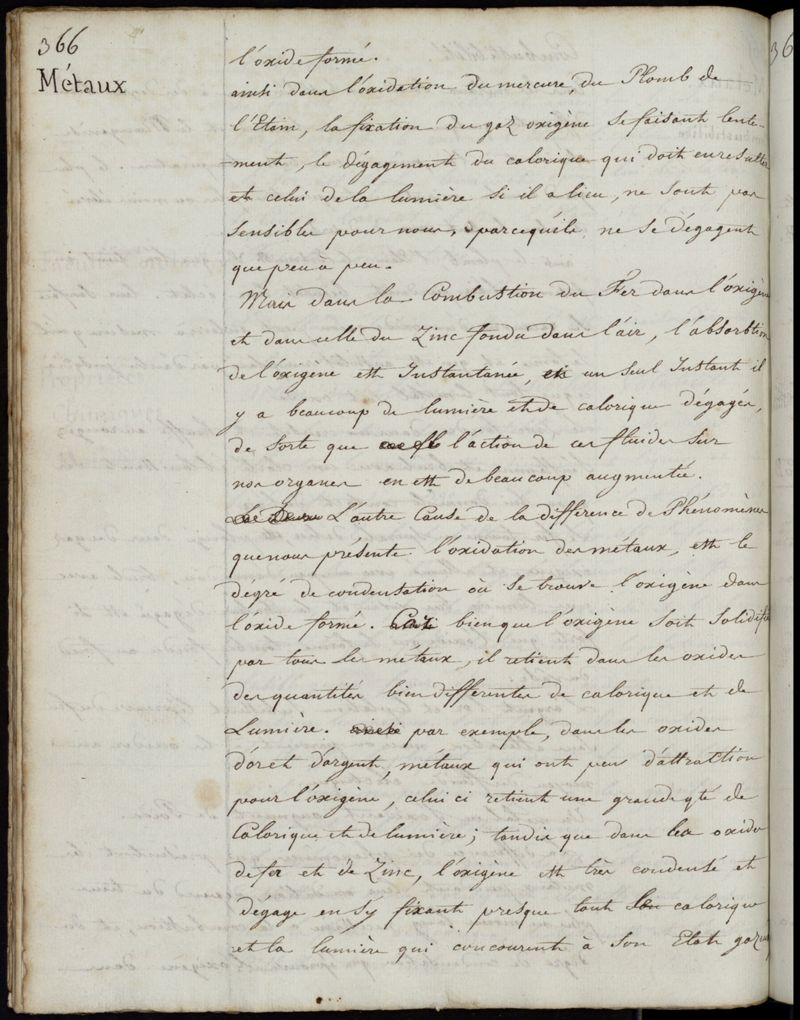 366
Métaux
l'óxide formé.
ainsi dans l'óxidation du mercure, du Plomb de
l'Etain, la fixation du gaz oxigène se faisant lente-
ment, le dégagement du calorique qui doit en resulter
et celui de la lumière si il a lieu, ne sont pas
sensibles pour nous, parcequ'ils ne se dégagent
que peu à peu.
Mais dans la Combustion du Fer dans l'oxigène
et dans celle du Zinc fondu dans l'air, l'absorbtion
de l'óxigène est Instantanée, en un seul Instant il
y a beaucoup de lumière et de calorique dégagés,
de sorte que l'action de ces fluides sur
nos organes en est de beaucoup augmentée.
L'autre Cause de la différence de Phénomènes
que nous présente l'oxidation des métaux, est le
dégré de condensation où se trouve l'oxigène dans
l'óxide formé. Car bien que l'oxigène soit solidifié
par tous les métaux, il retient dans les oxides
des quantités bien differentes de calorique et de
Lumière. ainsi par exemple, dans les oxides
d'or et d'argent, métaux qui ont peu d'attraction
pour l'óxigène, celui ci retient une grande qté de
Calorique et de lumière; tandis que dans les oxides
de fer et de Zinc, l'óxigène est très condensé et
dégage en s'y fixant presque tout son calorique
et la lumière qui concourent à son Etat gazeux
36